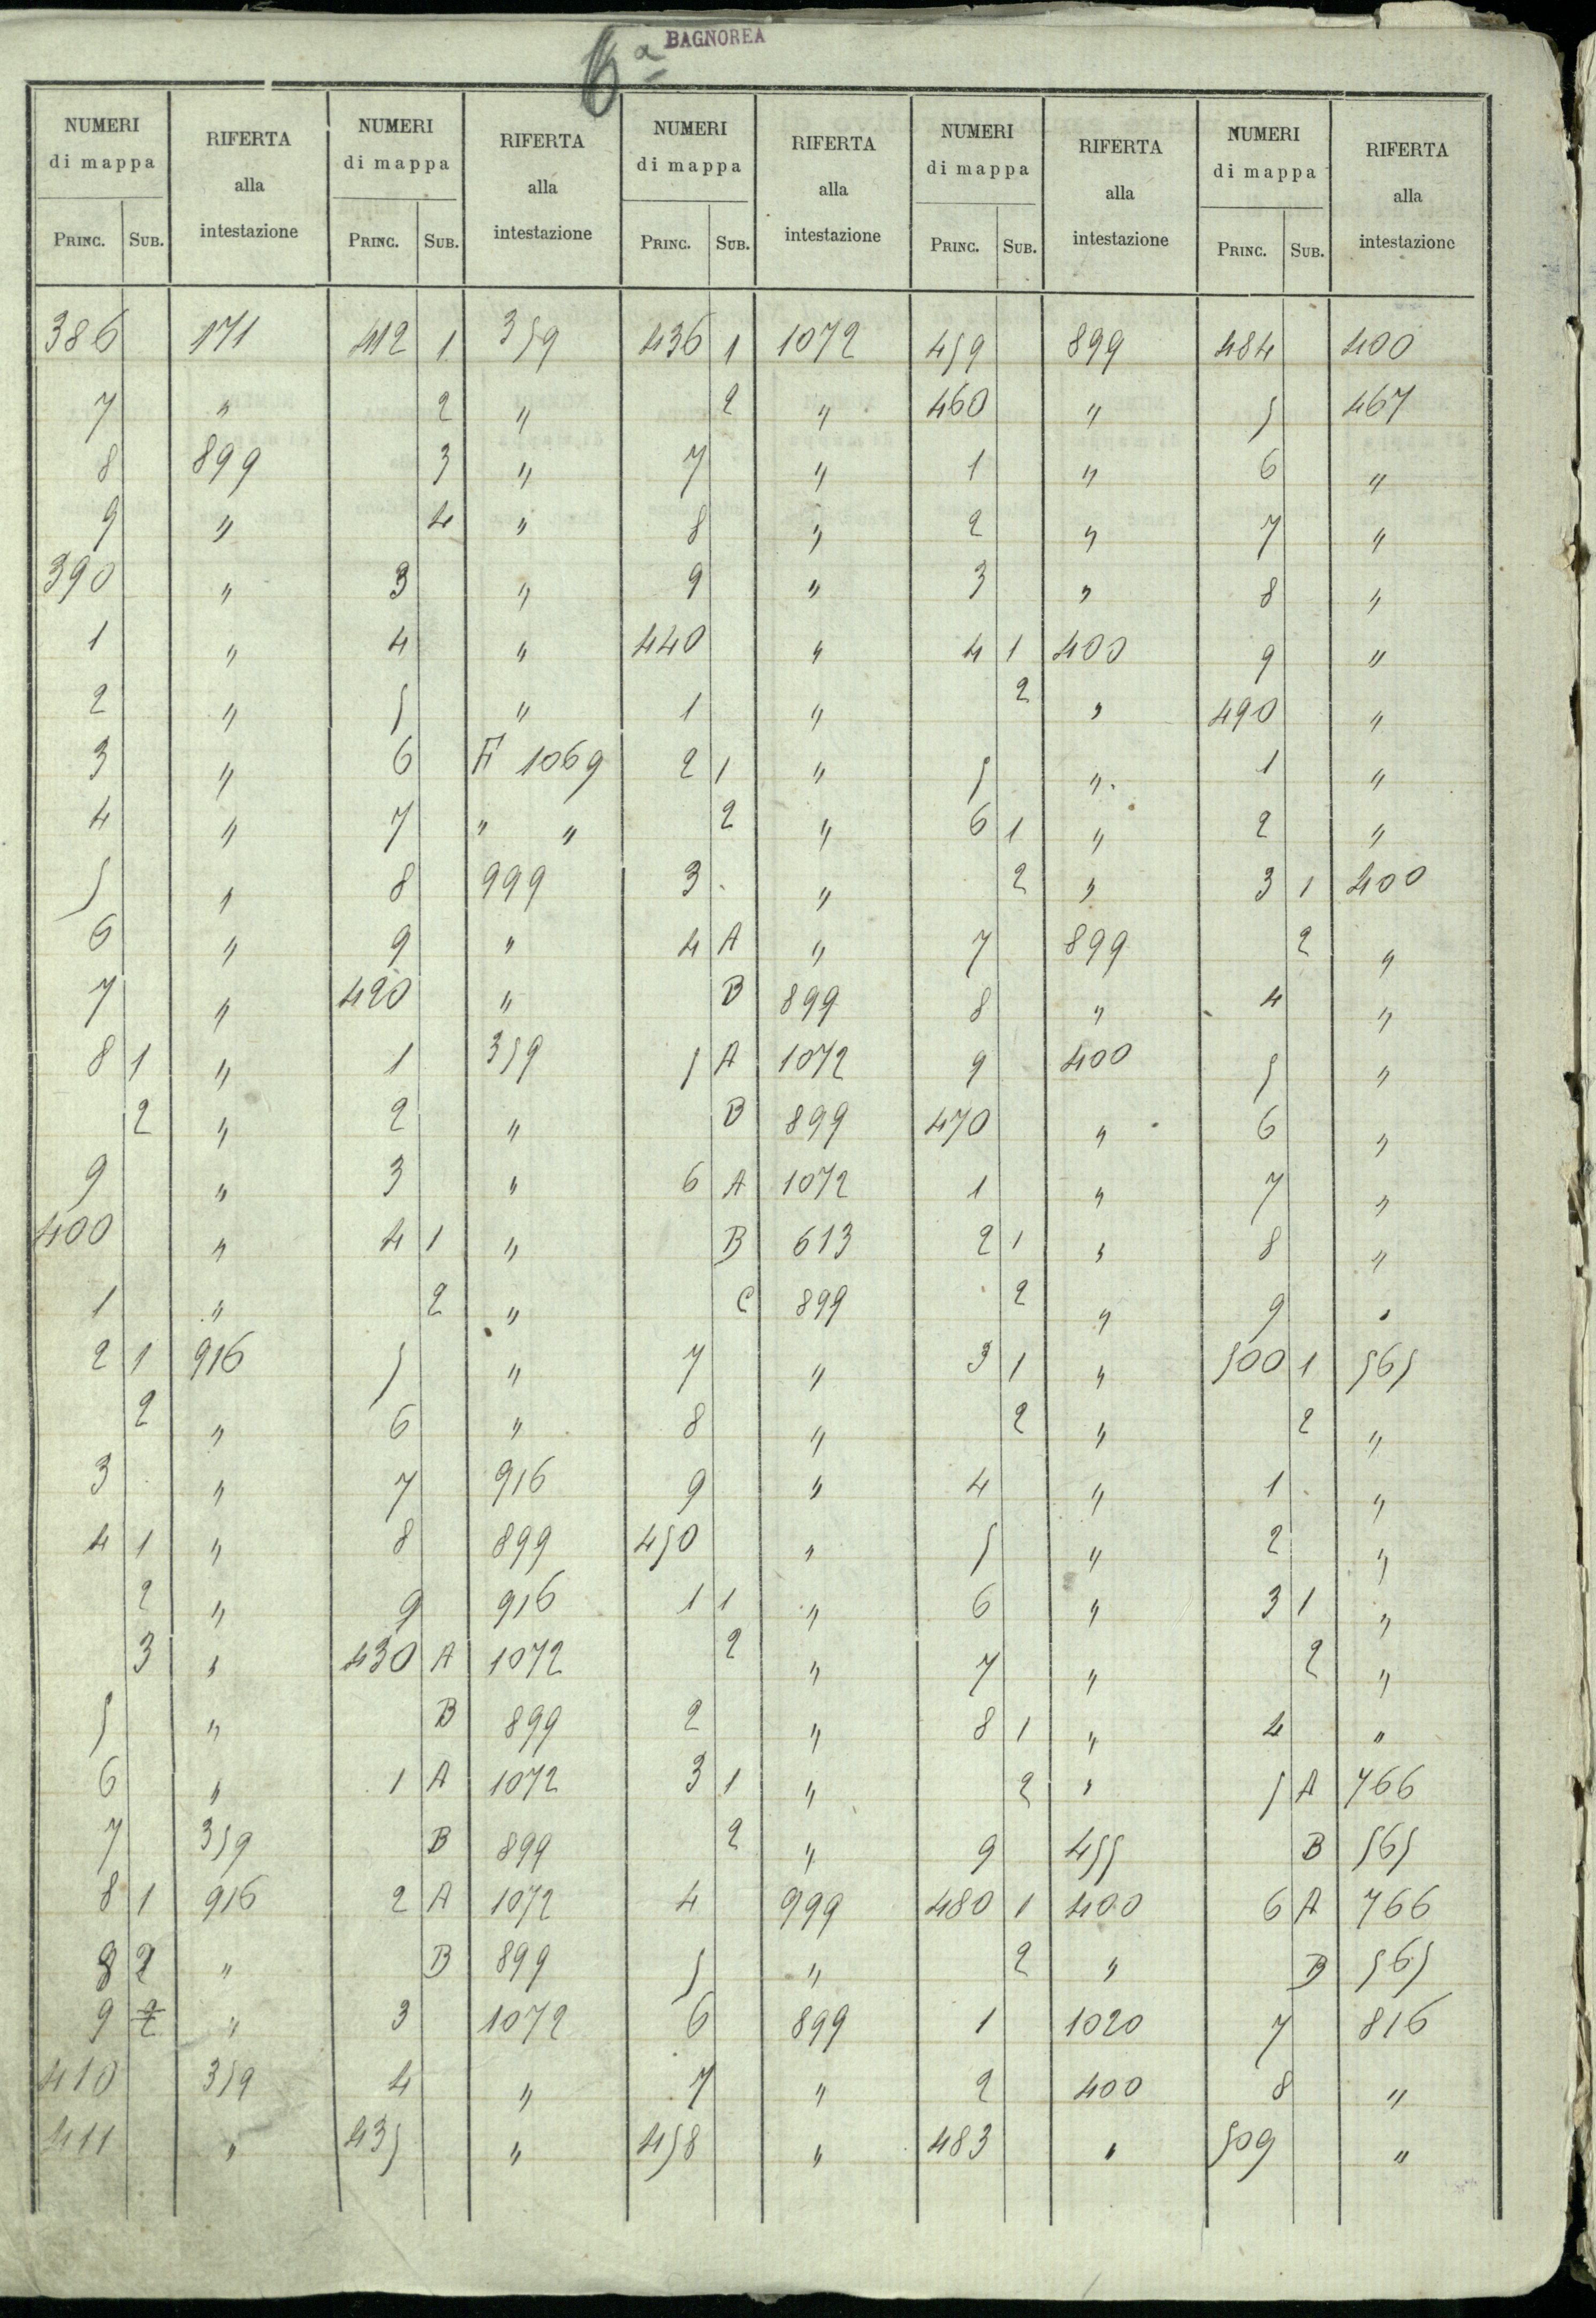 6ª BAGNOREA
NUMERI di mappa RIFERTA alla intestazione NUMERI di mappa RIFERTA alla intestazione NUMERI di mappa RIFERTA alla intestazione NUMERI di mappa RIFERTA alla intestazione NUMERI di mappa RIFERTA alla intestazione
PRINC. SUB. PRINC. SUB. PRINC. SUB. PRINC. SUB. PRINC. SUB.
386 171 412 1 359 436 1 1072 459 899 484 400
7 " 2 " 2 " 460 " 5 467
8 899 3 " 7 " 1 " 6 "
9 " 4 " 8 " 2 " 7 "
390 " 3 " 9 " 3 " 8 "
1 " 4 " 440 " 4 1 400 9 "
2 " 5 " 1 " 2 " 490 "
3 " 6 1069 2 1 " 5 " 1 "
4 " 7 " " 2 " 6 1 " 2 "
5 " 8 999 3 " 2 " 3 1 400
6 " 9 " 4 A " 7 899 2 "
7 " 420 " B 899 8 " 4 "
8 1 " 1 359 5 A 1072 9 400 5 "
2 " 2 " B 899 470 " 6 "
9 " 3 " 6 A 1072 1 " 7 "
400 " 4 1 " B 613 2 1 " 8 "
1 " 2 " C 899 2 " 9 "
2 1 916 5 " 7 " 3 1 " 500 1 565
2 " 6 " 8 " 2 " 2 "
3 " 7 916 9 " 4 " 1 "
4 1 " 8 899 450 " 5 " 2 "
2 " 9 916 1 1 " 6 " 3 1 "
3 " 430 A 1072 2 " 7 " 2 "
5 " B 899 2 " 8 1 " 4 "
6 " 1 A 1072 3 1 " 2 " 5 A 766
7 359 B 899 2 " 9 455 B 565
8 1 916 2 A 1072 4 999 480 1 400 6 A 766
8 2 " B 899 5 " 2 " B 565
9 2 " 3 1072 6 899 1 1020 7 816
410 359 4 " 7 " 2 400 8 "
411 " 435 " 458 " 483 " 509 "